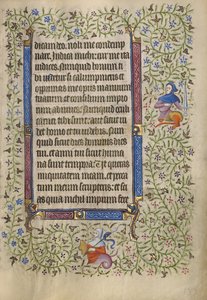 dicam deo. noli me contemp
nare. Indica michi cur me ita
iudices. Nunquid bonum ti
bi videtur si calumpnieris et
opprimas me opus manuum
tuarum et consilium impi
orum adiuves. Nunquid oculi
carnei tibi sunt aut sicut vi
det homo et tu videbis. Nun
quid sicut dies hominis dies
tui. et anni tui sicut huma
na sunt tempora ut queras
iniquitatem meam. et pecca
tum meum scruteris. et sci
as quia nichil impium fece